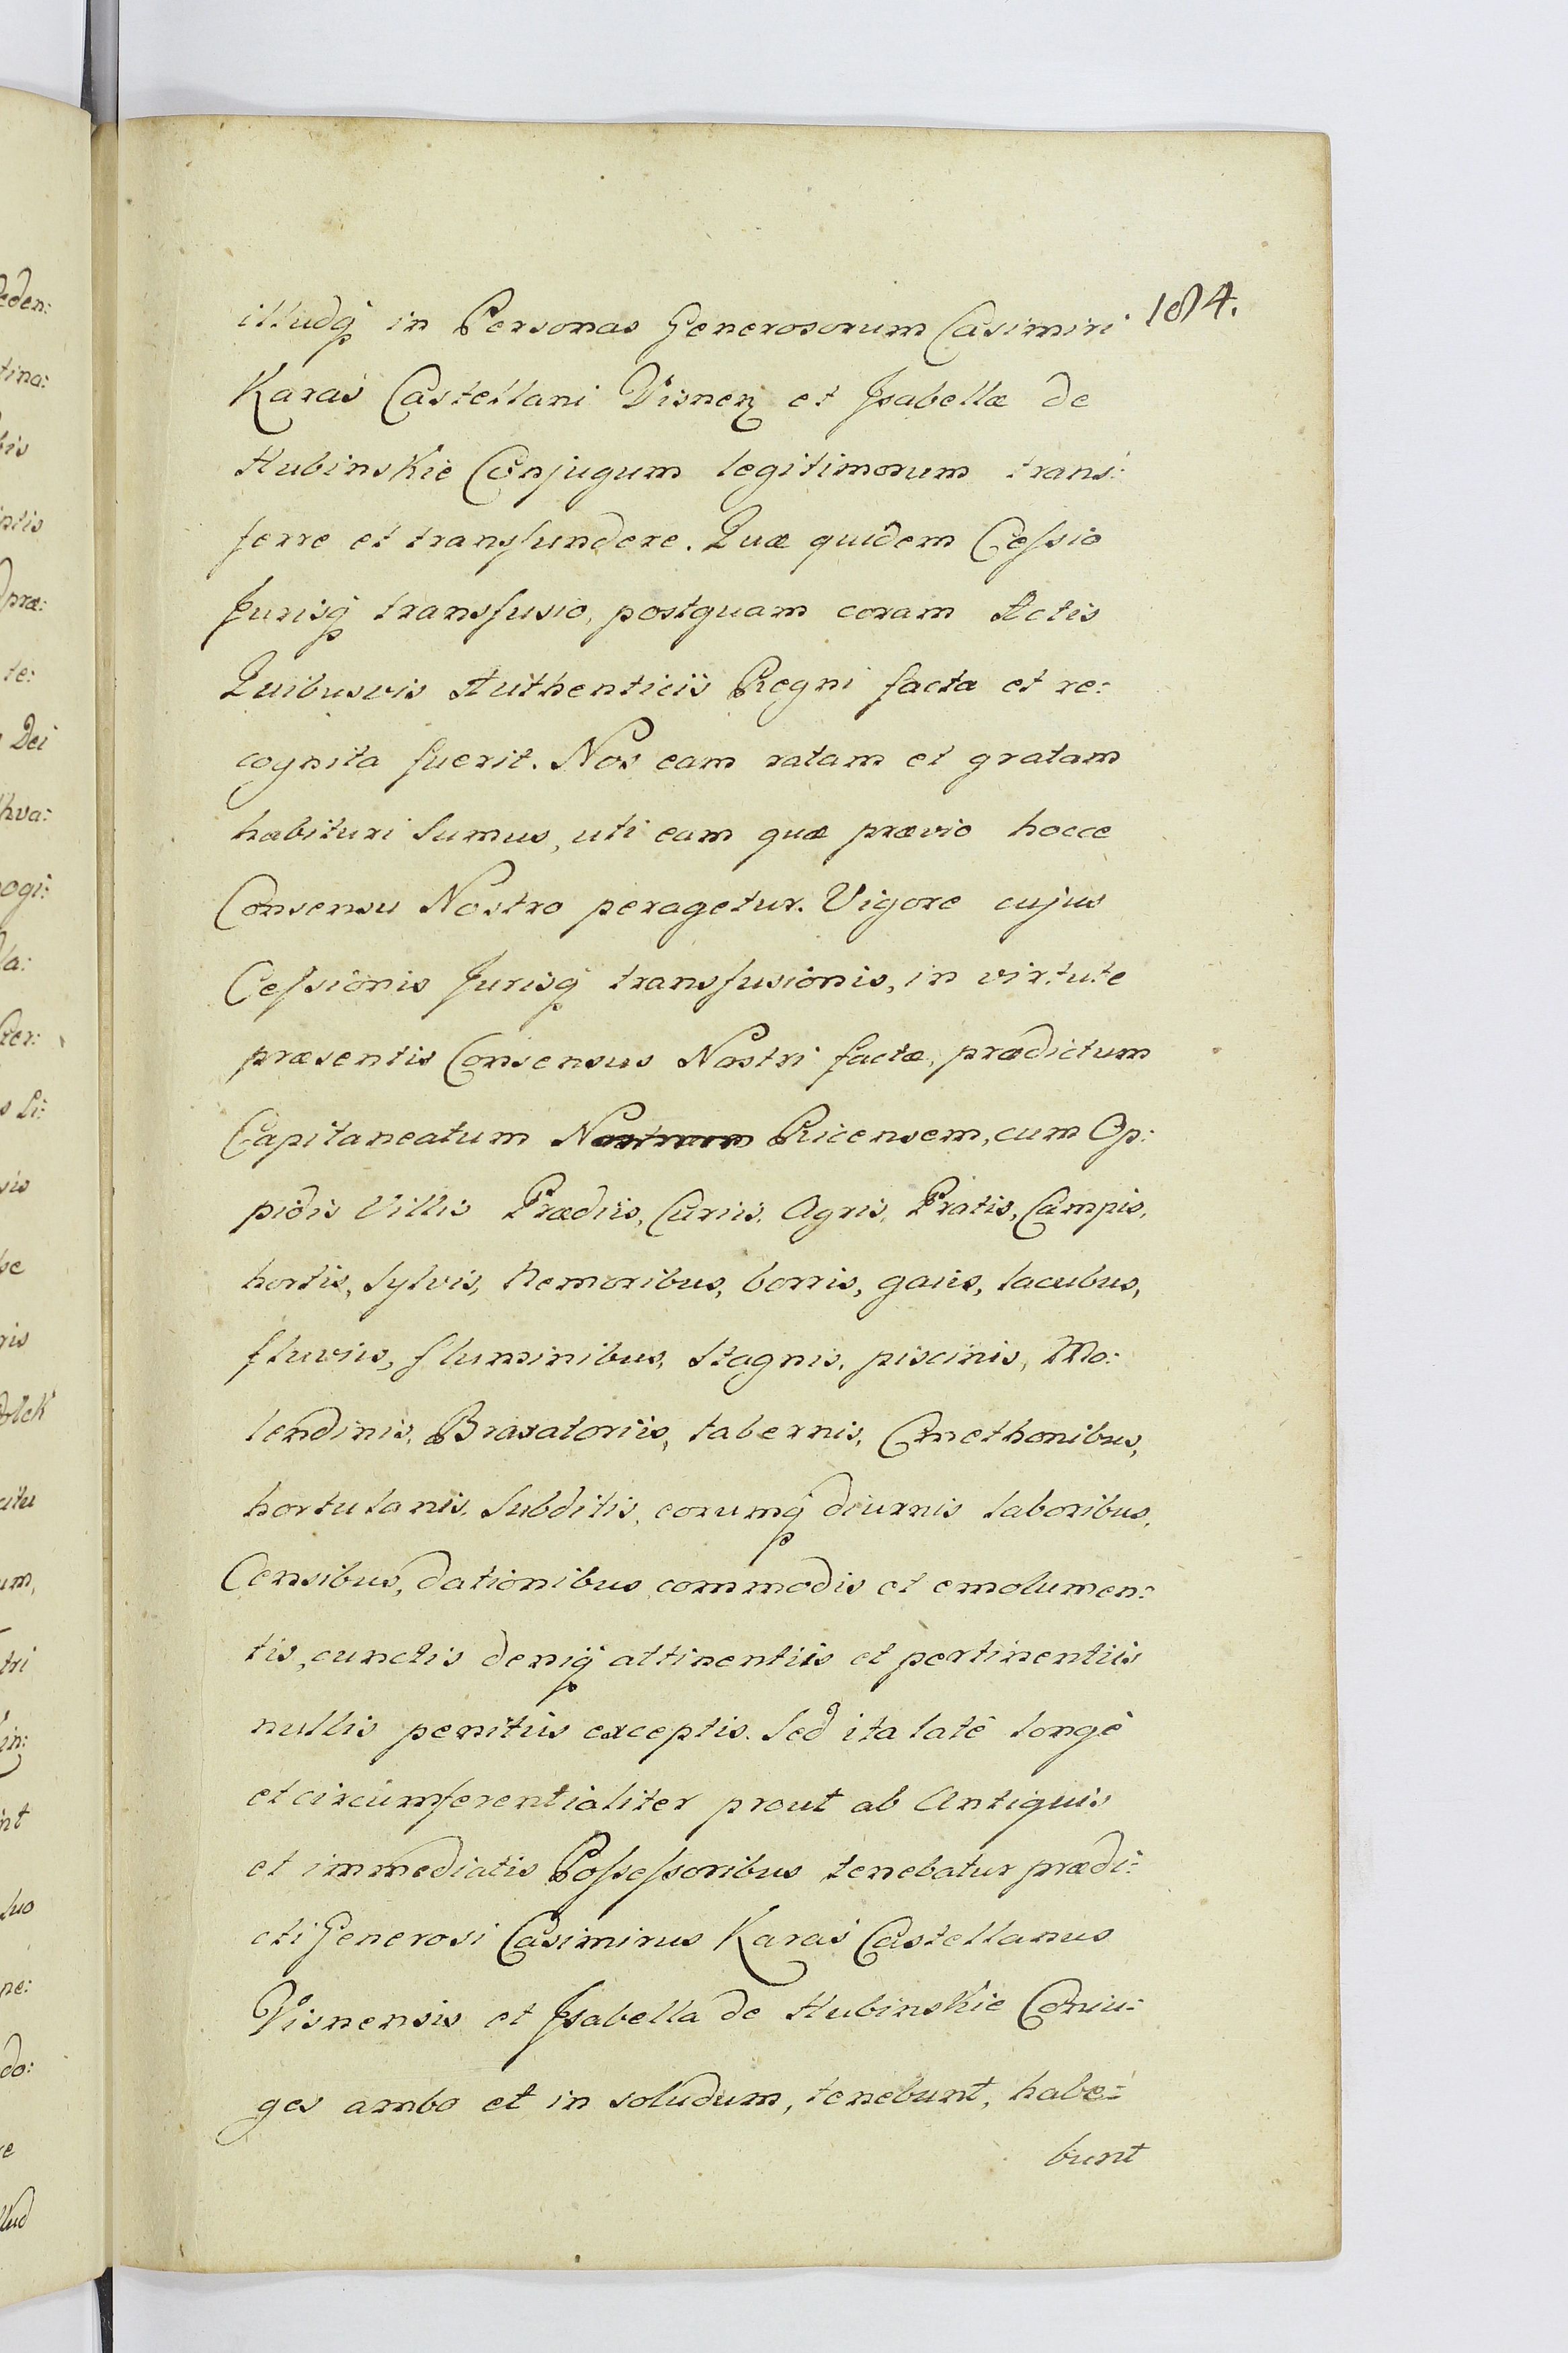 184.
illudq́ in Personas Generosorum Casimiri
Karaś Castellani Visneń et Isabellæ de
Hubinskie Conjugum legitimorum trans:
ferre et transfundere. Quæ quidem Cessio
Jurisq́ transfusio, postquam coram Actis
Quibusvis Authenticis Regni facta et re:
cognita fuerit. Nos eam ratam et gratam
habituri sumus, uti eam quæ prævio hocce
Consensu Nostro peragetur. Vigore cujus
Cessionis Jurisq́ transfusionis, in virtute
præsentis Consensus Nostri factæ, prædictum
Capitaneatum Nostrum Ricensem, cum Op:
pidis Villis Prædiis, Curiis, Agris, Pratis, Campis,
hortis, Sylvis, Nemoribus, borris, gaiis, lacubus,
fluviis, fluminibus, Stagnis, piscinis, Mo:
lendinis, Braxatoriis, tabernis, Cmethonibus,
hortulanis, Subditis, eorumq́ diurnis laboribus,
Censibus, dationibus, commodis et emolumen:
tis, cunctis deniq́ attinentiis et pertinentiis
nullis penitùs exceptis. Sed ita latè longè
et circumferentialiter prout ab Antiquis
et immediatis Possessoribus tenebatur prædi:
cti Generosi Casimirus Karaś Castellanus
Visnensis et Isabella de Hubinskie Coniu:
ges ambo et in soludum, tenebunt, habe:
bunt
eden:
tina:
bis
præ:
te:
Dei
ogi:
la:
sis
um,
tri
in:
suo
ne:
do: